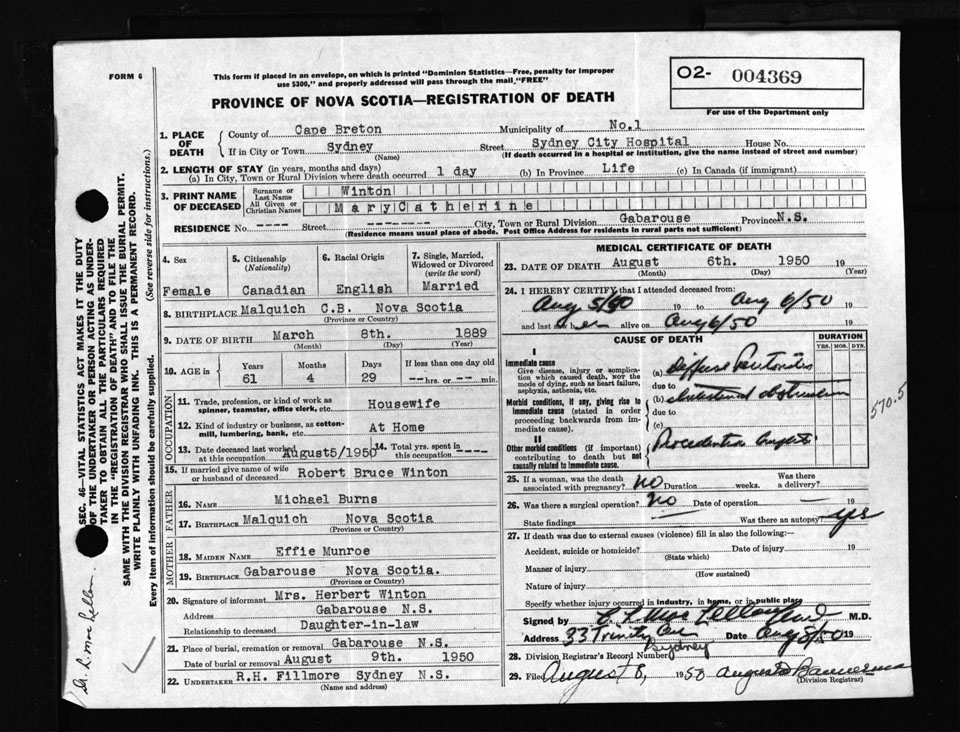 FORM 6
This form if placed in an envelope, on which is printed "Dominion Statistics—Free, penalty for improper
use $300," and properly addressed will pass through the mail "FREE"
O2- 004369
For use of the Department only
PROVINCE OF NOVA SCOTIA—REGISTRATION OF DEATH
1. PLACE OF DEATH
County of Cape Breton Municipality of No.1
If in City or Town Sydney Street Sydney City Hospital House No.
(Name) (If death occurred in a hospital or institution, give the name instead of street and number)
2. LENGTH OF STAY (in years, months and days)
(a) In City, Town or Rural Division where death occurred 1 day (b) In Province Life (c) In Canada (if immigrant)
3. PRINT NAME OF DECEASED
Surname or Last Name Winton
All Given or Christian Names Mary Catherine
RESIDENCE No. ---- Street ------- City, Town or Rural Division Gabarouse Province N.S.
(Residence means usual place of abode. Post Office Address for residents in rural parts not sufficient)
4. Sex
Female
5. Citizenship (Nationality)
Canadian
6. Racial Origin
English
7. Single, Married, Widowed or Divorced (write the word)
Married
8. BIRTHPLACE Malquich C.B. Nova Scotia
(Province or Country)
9. DATE OF BIRTH March 8th. 1889
(Month) (Day) (Year)
10. AGE in Years Months Days If less than one day old
61 4 29 -- hrs. or -- min.
OCCUPATION
11. Trade, profession, or kind of work as spinner, teamster, office clerk, etc. Housewife
12. Kind of industry or business, as cotton-mill, lumbering, bank, etc. At Home
13. Date deceased last worked at this occupation August5/1950 14. Total yrs. spent in this occupation ----
15. If married give name of wife or husband of deceased Robert Bruce Winton
FATHER
16. NAME Michael Burns
17. BIRTHPLACE Malquich Nova Scotia
(Province or Country)
MOTHER
18. MAIDEN NAME Effie Munroe
19. BIRTHPLACE Gabarouse Nova Scotia.
(Province or Country)
20. Signature of informant Mrs. Herbert Winton
Address Gabarouse N.S.
Relationship to deceased Daughter-in-law
21. Place of burial, cremation or removal Gabarouse N.S.
Date of burial or removal August 9th. 1950
22. UNDERTAKER R.H. Fillmore Sydney N.S.
(Name and address)
MEDICAL CERTIFICATE OF DEATH
23. DATE OF DEATH August 6th. 1950 19
(Month) (Day) (Year)
24. I HEREBY CERTIFY that I attended deceased from:
Aug 5/50 19 to Aug 6/50 19
and last saw her alive on Aug 6/50 19
CAUSE OF DEATH
DURATION
YRS. MOS. DYS.
I
Immediate cause
Give disease, injury or complication which caused death, NOT the mode of dying, such as heart failure, asphyxia, asthenia, etc.
(a) Diffuse Peritonitis
due to
Morbid conditions, if any, giving rise to immediate cause (stated in order proceeding backwards from immediate cause).
(b) Intestinal obstruction
due to
(c)
570.5
II
Other morbid conditions (if important) contributing to death but not causally related to immediate cause.
25. If a woman, was the death associated with pregnancy? no Duration weeks. Was there a delivery?
26. Was there a surgical operation? no Date of operation — 19
State findings — Was there an autopsy? yes
27. If death was due to external causes (violence) fill in also the following:—
Accident, suicide or homicide? Date of injury 19
(State which)
Manner of injury
(How sustained)
Nature of injury
Specify whether injury occurred in industry, in home, or in public place
Signed by M.D.
Address 33 Trinity Ave Date Aug 8/50 19
Sydney
28. Division Registrar's Record Number
29. Filed August 8, 1950
(Division Registrar)
SEC. 46—VITAL STATISTICS ACT MAKES IT THE DUTY
OF THE UNDERTAKER OR PERSON ACTING AS UNDER-
TAKER TO OBTAIN ALL THE PARTICULARS REQUIRED
IN THE "REGISTRATION OF DEATH" AND TO FILE THE
SAME WITH THE DIVISION REGISTRAR WHO SHALL ISSUE THE BURIAL PERMIT.
WRITE PLAINLY WITH UNFADING INK. THIS IS A PERMANENT RECORD.
Every item of information should be carefully supplied. (See reverse side for instructions.)